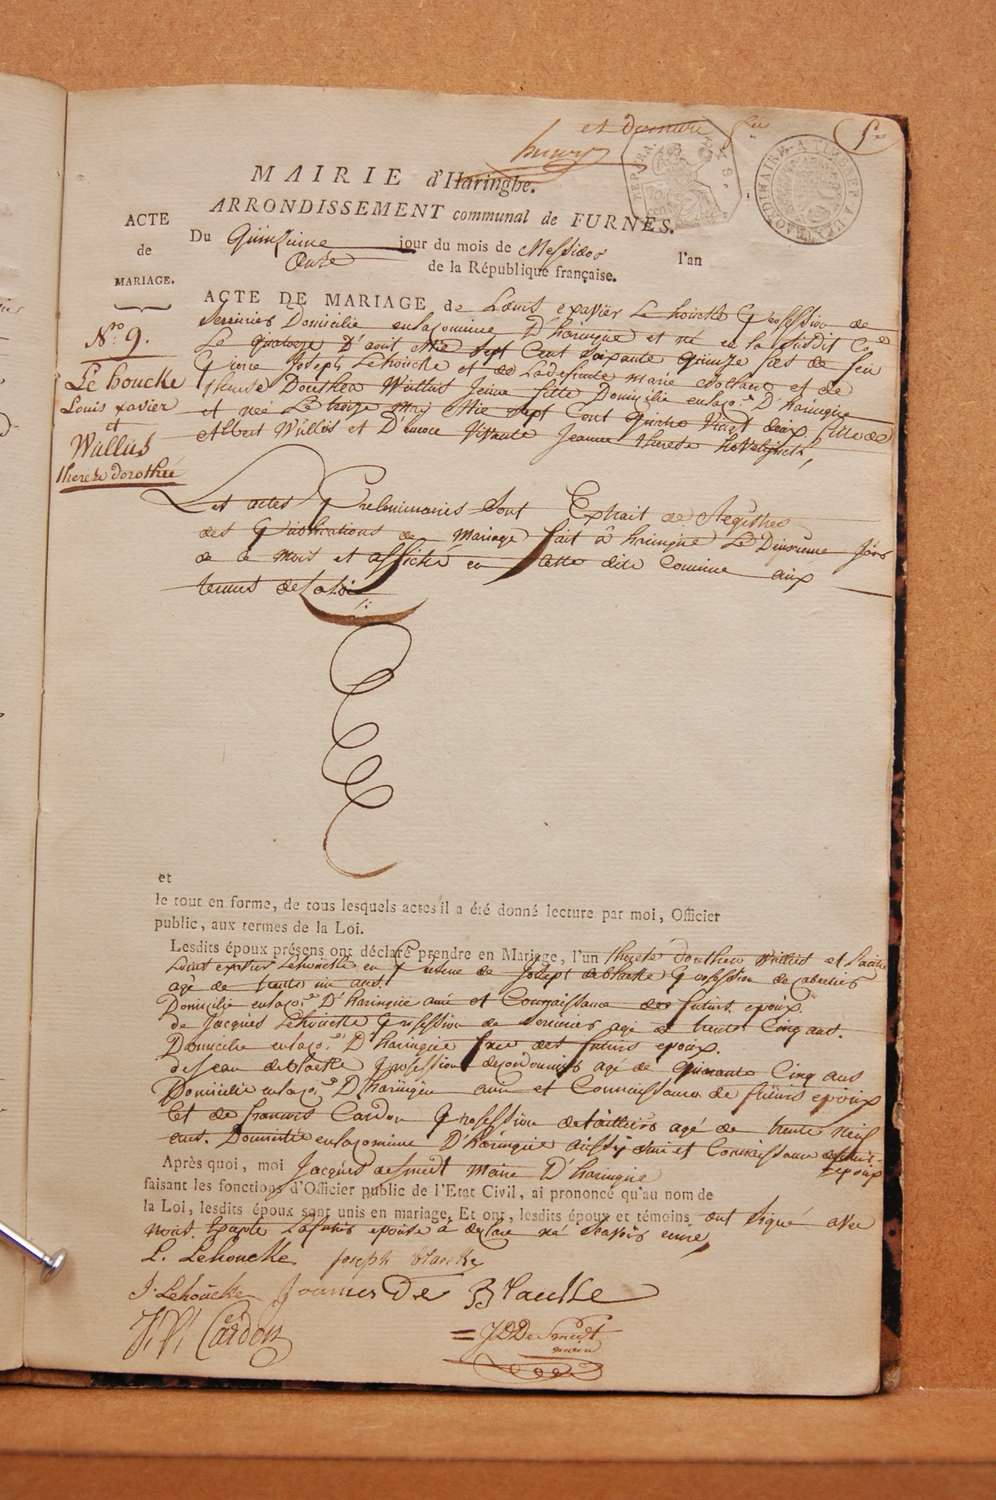 et dernier
MAIRIE d'Haringhe.
ARRONDISSEMENT communal de FURNES.
ACTE
de
MARIAGE.
Du Quinzieme jour du mois de Messidor l'an
Onse de la République française.
N.ro 9.
Le houcke
Louis xavier
et
Wallus
therese dorothée
ACTE DE MARIAGE de Louis exavier Lehoucke Profession de
Serruries Domicilié en la comune D'haringue et né en la susdit C.ne
Le quatorze D'aout Mil sept Cent soixante quinze fils de feu
Pierre Joseph Lehoucke et de La defunte marie et de
therese Dorothea Wallus Jeune fille Domicilie en la co.e D'haringue
et née Le treize may Mil sept Cent quatre Vingt deux fille de
Albert Wallus et D'encore Vivante Jeanne therese
Les actes Preliminaires Sont Extrait de Registres
des Publications de mariage fait à haringue Le Deuxieme Jour
de ce mois et affiché en cette dite Comune aux
termes de la Loi
et
le tout en forme, de tous lesquels actes il a été donné lecture par moi, Officier
public, aux termes de la Loi.
Lesdits époux présens ont déclaré prendre en Mariage, l'un therese dorothea Wallus et l'autre
Louis exavier Lehoucke en presence de Joseph de blaecke Profession de cabartier
agé de trente un ans.
Domicilie en la co.e D'haringue ami et Connaissance des futurs epoux.
de Jacques Lehoucke Profession de Serruries agé de trente Cinq ans.
Domicilie en la co.e D'haringue frere des futurs epoux.
de Jean de blaecke Profession de cordonniers agé de quarante Cinq ans
Domicilie en la co.e D'haringue ami et Connaissance de futurs epoux
Et de francois Cardon Profession de tailliers agé de trente neuf
ans. Domicilié en la comune D'haringue aussi ami et Connaissance des futurs
epoux
Après quoi, moi Jacques de Smedt Maire D'haringue
faisant les fonctions d'Officier public de l'Etat Civil, ai prononcé qu'au nom de
la Loi, lesdits époux sont unis en mariage, Et ont, lesdits époux et témoins ont signé avec
nous. Excepte La future epouse à declare ne scavoir ecrire
L. Lehoucke Joseph blaecke
J. Lehoucke Joannes De Blaecke
Cardon
= J D De Smedt
maire